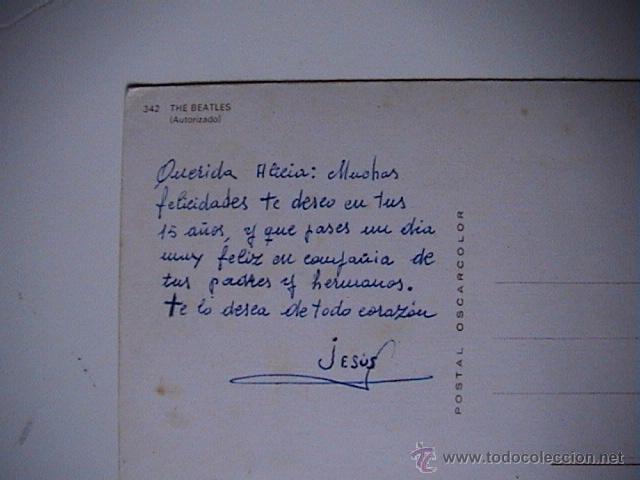 342 THE BEATLES
(Autorizado)
Querida Alicia: Muchas
felicidades te deseo en tus
15 años, y que pases un dia
muy feliz en compañia de
tus padres y hermanos.
te lo desea de todo corazón
Jesús
POSTAL OSCARCOLOR
© www.todocoleccion.net